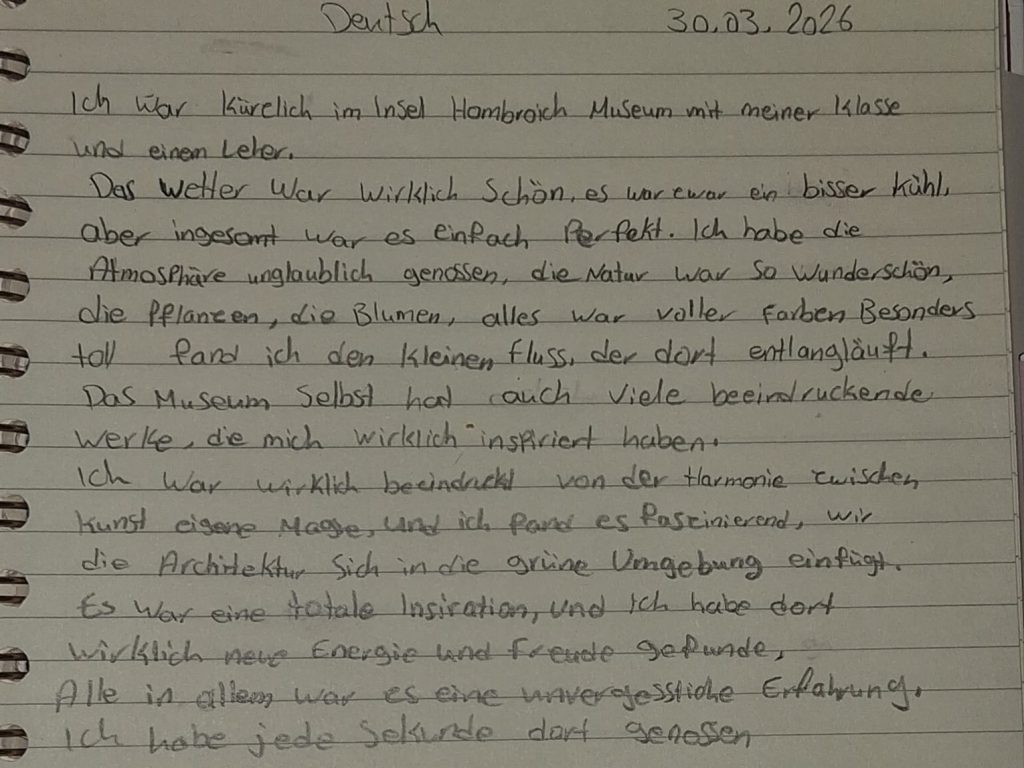 Deutsch 30.03.2026
Ich war kürclich im Insel Hombroich Museum mit meiner Klasse
und einem Leher.
Das Wetter war wirklich Schön, es war zwar ein bisser kühl,
aber ingesamt war es einfach Perfekt. Ich habe die
Atmosphäre unglaublich genossen, die Natur war so wunderschön,
die Pflanzen, die Blumen, alles war voller Farben Besonders
toll fand ich den kleinen fluss, der dort entlangläuft.
Das Museum Selbst hat auch viele beeindruckende
Werke, die mich wirklich inspiriert haben.
Ich war wirklich beeindruckt von der Harmonie zwischen
Kunst eigene Magse, und ich fand es fascinierend, wir
die Architektur Sich in die grüne Umgebung einfügt.
Es war eine totale Insiration, und Ich habe dort
wirklich neue Energie und Freude gefunde,
Alle in allem war es eine unvergessliche Erfahrung.
Ich habe jede Sekunde dort genossen